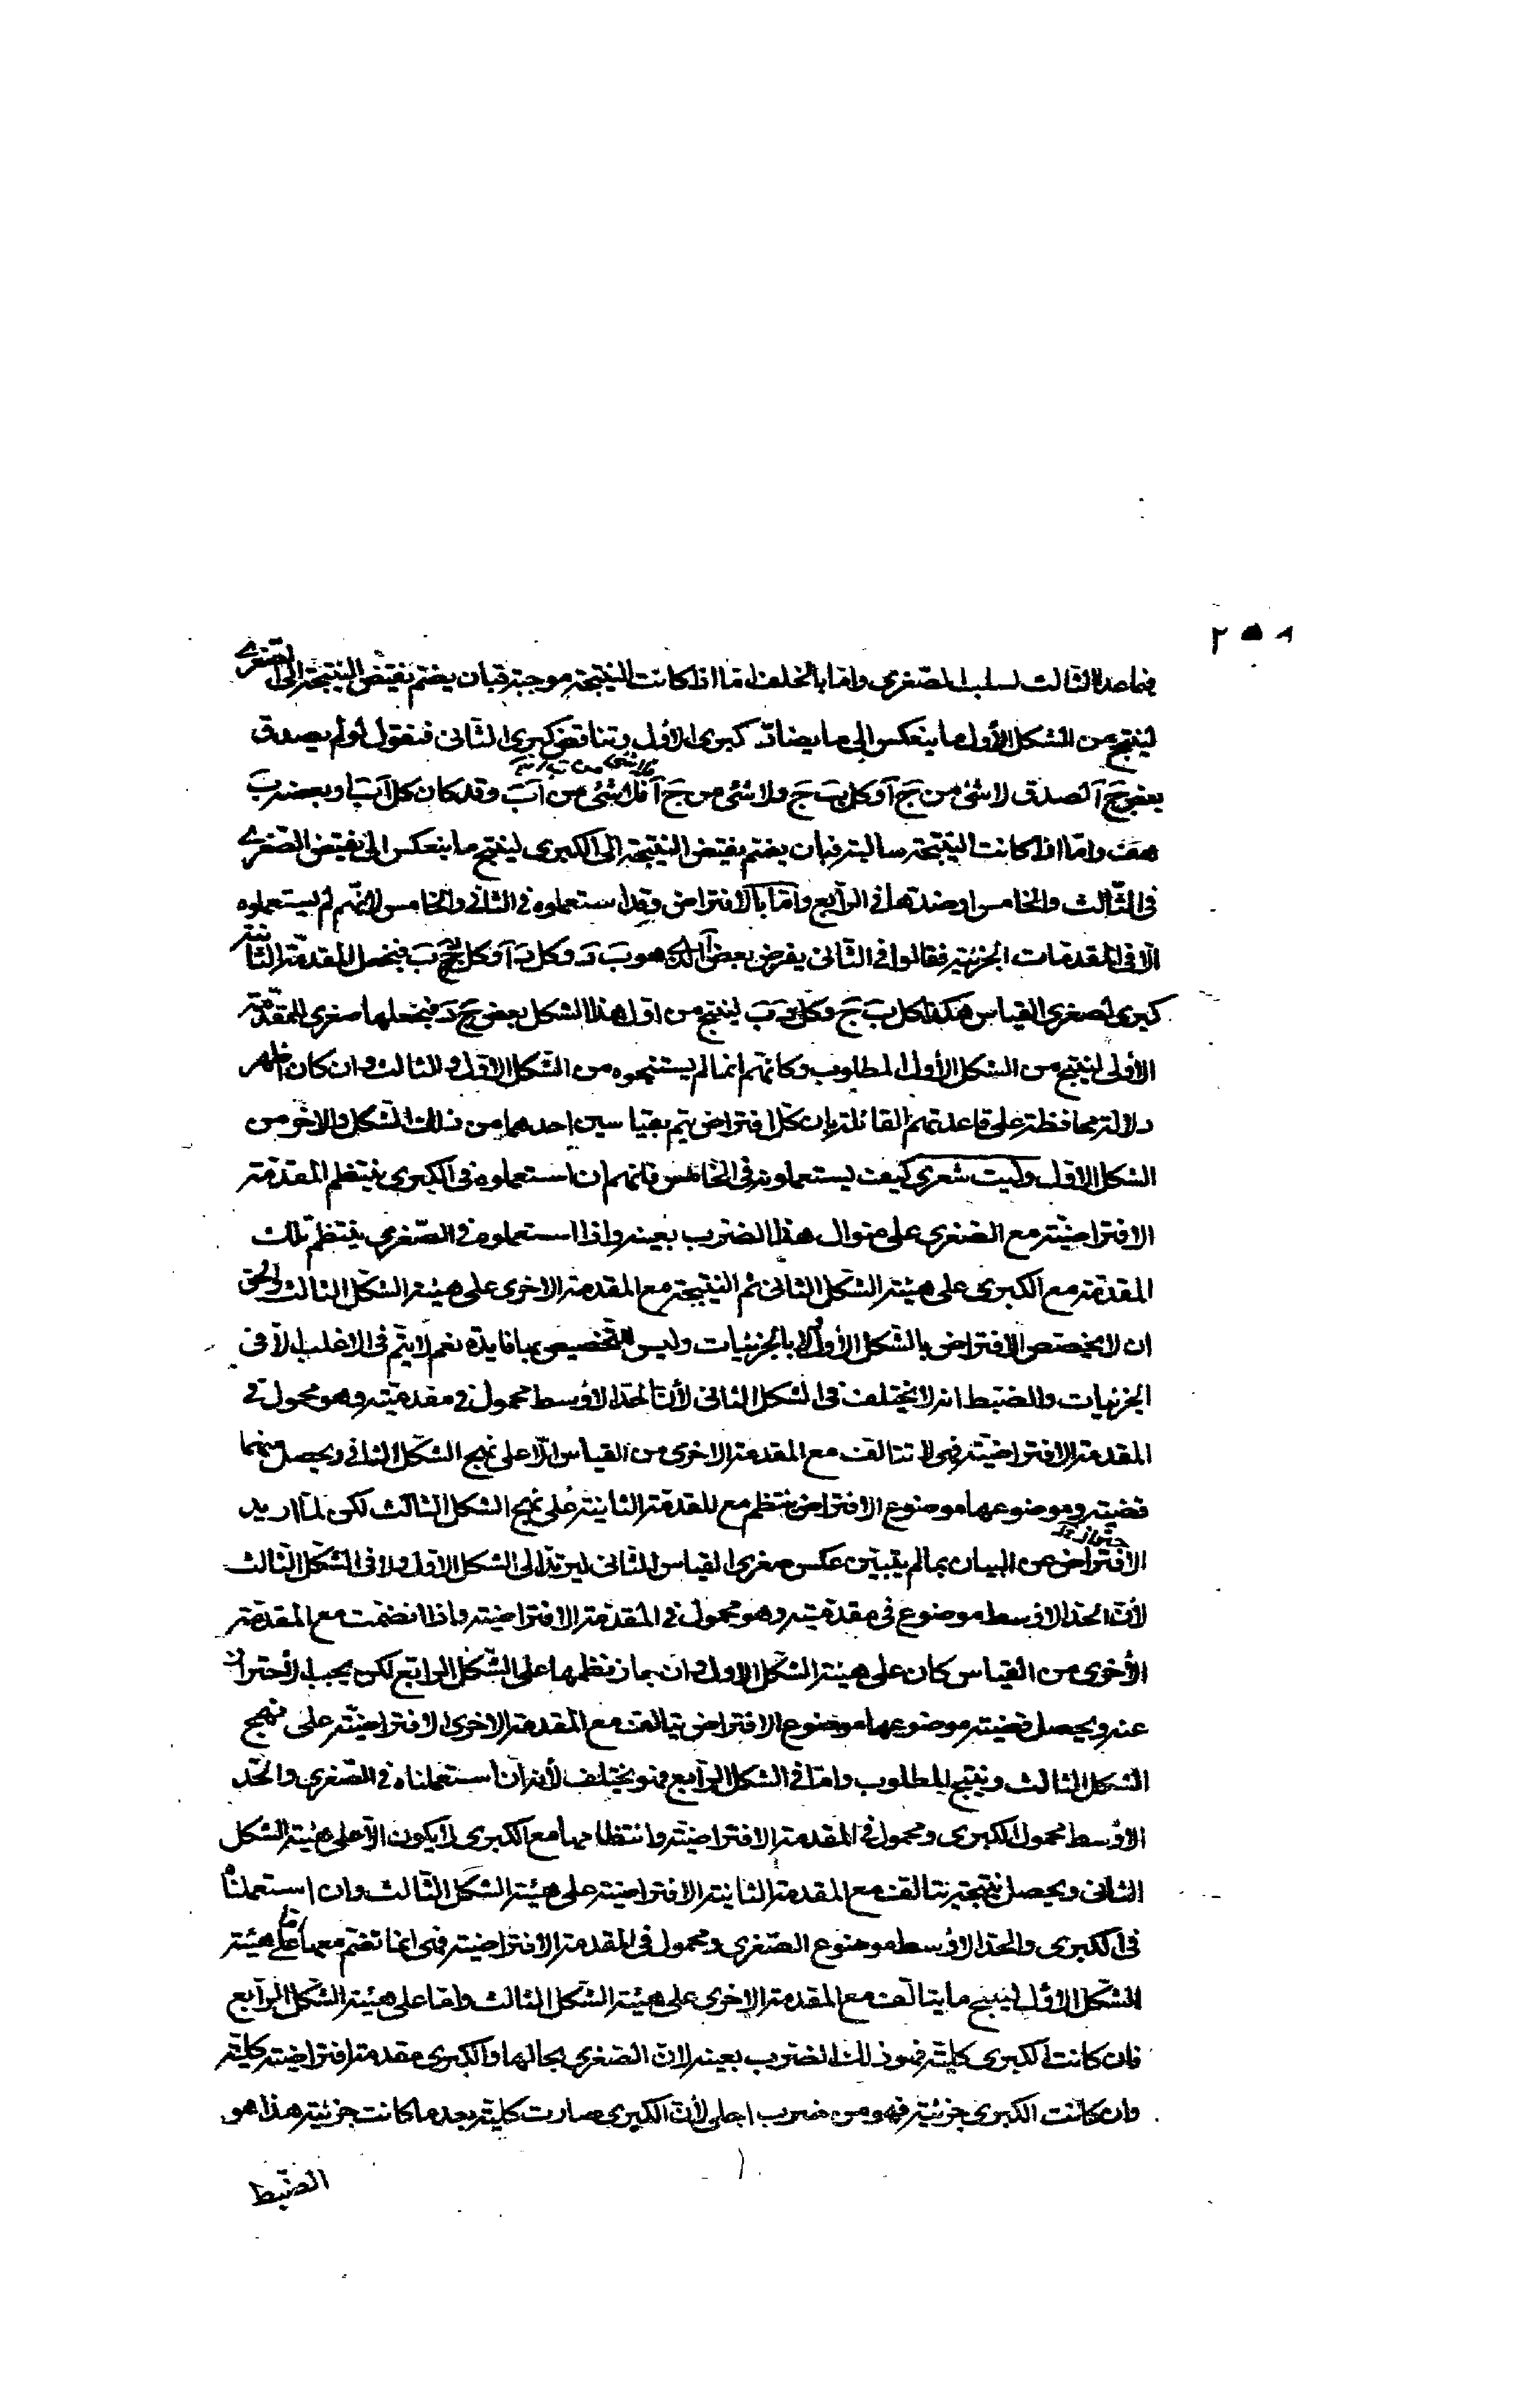 ٢٥٨
فيما عدا الثالث لسلب الصغرى واما بالخلف اما اذا كانت النتيجة موجبة فبان يضم نقيض النتيجة الى الصغرى
لينتج من الشكل الأول ما ينعكس الى ما يضاد كبرى الاول وتناقض كبرى الثانى فنقول لو لم يصدق
بعض ج آ لصدق لا شئ من ج آ وكل ب ج ولا شئ من ج آ فلا شئ من آ ب وقد كان كل آ ب او بعضه ب
هف واما اذا كانت النتيجة سالبة فبان يضم نقيض النتيجة الى الكبرى لينتج ما ينعكس الى نقيض الصغرى
فى الثالث والخامس او ضدها فى الرابع واما بالافتراض وقد استعملوه فى الثانى والخامس لانهم لم يستعملوه
الا فى المقدمات الجزئية فقالوا فى الثانى يفرض بعض آ الذى هو ب د وكل د آ وكل د ب فنجعل المقدمة الثانية
كبرى لصغرى القياس هكذا كل ب ج وكل د ب لينتج من اول هذا الشكل بعض ج د فنجعلها صغرى للمقدمة
الأولى لينتج من الشكل الأول المطلوب وكانهم انما لم يستنتجوه من الشكل الاول والثالث وان كان اظهر
دلالة محافظة على قاعدتهم القائلة بان كل افتراض يتم بقياسين احدهما من ذلك الشكل والاخر من
الشكل الاول وليت شعرى كيف يستعملونه فى الخامس فانهم ان استعملوه فى الكبرى ينتظم المقدمة
الافتراضية مع الصغرى على منوال هذا الضرب بعينه واذا استعملوه فى الصغرى ينتظم تلك
المقدمة مع الكبرى على هيئة الشكل الثانى ثم النتيجة مع المقدمة الاخرى على هيئة الشكل الثالث والحق
ان لا يختص الافتراض بالشكل الأول ولا بالجزئيات وليس للتخصيص بها فايدة نعم لا يتم فى الاغلب الا فى
الجزئيات والضبط انه لا يختلف فى الشكل الثانى لأن الحد الاوسط محمول فى مقدمتيه وهو محمول فى
المقدمة الافتراضية فهى لا تتألف مع المقدمة الاخرى من القياس الا على نهج الشكل الثانى ويحصل منهما
قضية وموضوعها موضوع الافتراض ينتظم مع المقدمة الثانية على نهج الشكل الثالث لكن لما اريد
الافتراض من البيان بما لم يتبين عكس صغرى القياس الثانى ليرتد الى الشكل الاول ولا فى الشكل الثالث
لأن الحد الاوسط موضوع فى مقدمتيه وهو محمول فى المقدمة الافتراضية واذا انضمت مع المقدمة
الأخرى من القياس كان على هيئة الشكل الاول وان جاز نظمها على الشكل الرابع لكن يجب الأحتراز
عنه ويحصل قضية موضوعها موضوع الافتراض يتألف مع المقدمة الاخرى الافتراضية على نهج
الشكل الثالث وينتج المطلوب واما فى الشكل الرابع فهو يختلف لأنه ان استعملناه فى الصغرى والحد
الاوسط محمول الكبرى ومحمول فى المقدمة الافتراضية وانتظامها مع الكبرى لا يكون الا على هيئة الشكل
الثانى ويحصل نتيجة تتألف مع المقدمة الثانية الافتراضية على هيئة الشكل الثالث وان استعملناه
فى الكبرى والحد الاوسط موضوع الصغرى ومحمول فى المقدمة الافتراضية فهى انما تضم معها اما على هيئة
الشكل الاول لينتج ما يتألف مع المقدمة الاخرى على هيئة الشكل الثالث واما على هيئة الشكل الرابع
فان كانت الكبرى كلية فهو ذلك الضرب بعينه لان الصغرى بحالها والكبرى مقدمة افتراضية كلية
وان كانت الكبرى جزئية فهو من ضرب اجلى لأن الكبرى صارت كلية بعد ما كانت جزئية هذا هو
الضبط